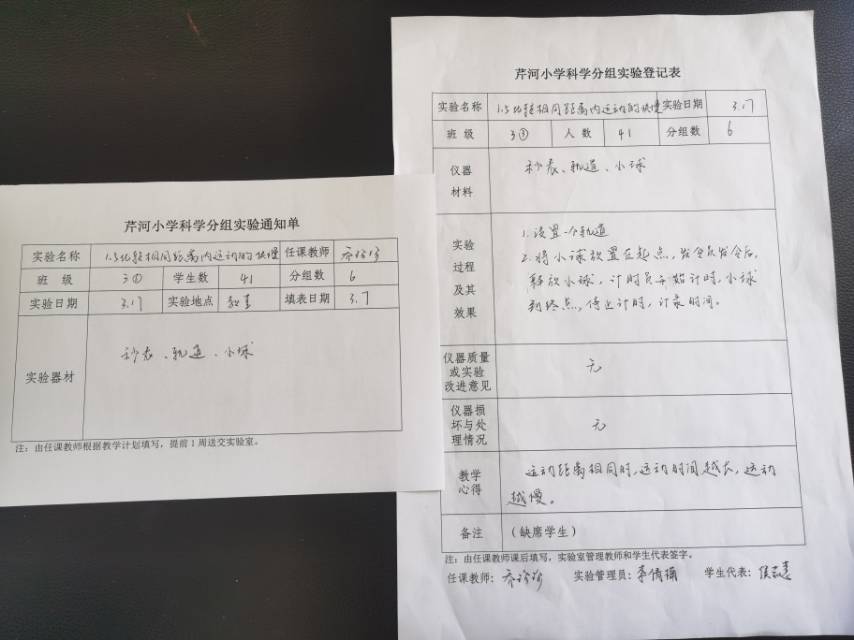 芹河小学科学分组实验通知单
实验名称 1.5比较相同距离内运动的快慢 任课教师 乔珍珍
班 级 3① 学生数 41 分组数 6
实验日期 3.17 实验地点 教室 填表日期 3.7
实验器材 秒表、轨道、小球
注：由任课教师根据教学计划填写，提前1周送交实验室。
芹河小学科学分组实验登记表
实验名称 1.5比较相同距离内运动的快慢 实验日期 3.17
班 级 3③ 人 数 41 分组数 6
仪器材料 秒表、轨道、小球
实验过程及其效果
1.设置一个轨道
2.将小球放置在起点，发令员发令后，
释放小球，计时员开始计时，小球
到终点，停止计时，计录时间。
仪器质量或实验改进意见 无
仪器损坏与处理情况 无
教学心得 运动距离相同时，运动时间越长，运动
越慢。
备注 （缺席学生）
注：由任课教师课后填写，实验室管理教师和学生代表签字。
任课教师：乔珍珍 实验管理员：李倩 学生代表：